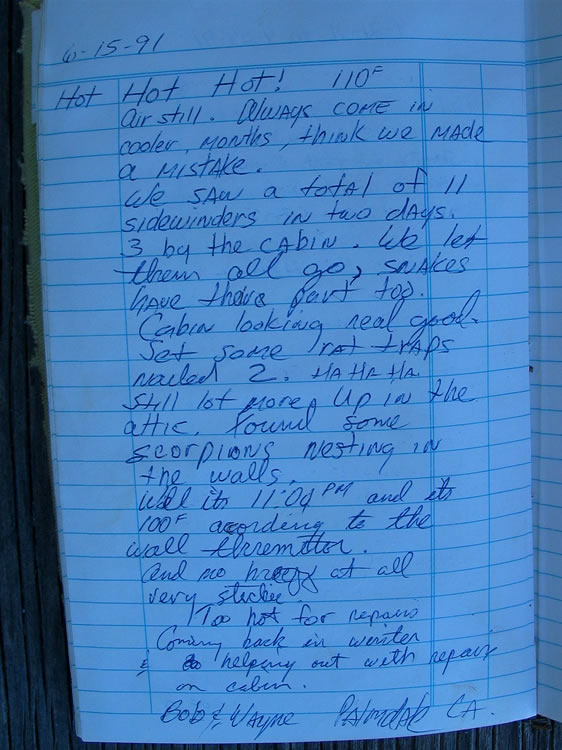 6-15-91
Hot Hot Hot! 110F
air still. Always COME IN
cooler, months, think we MADE
a MISTAKE.
We SAW a total of 11
sidewinders in two days.
3 by the CABIN. We let
them all go, SNAKES
have there part too.
Cabin looking real good.
Set some rat traps
nailed 2. HA HA HA
still lot more up in the
attic. found some
scorpions nesting in
the walls.
Well its 11:04 PM and its
100F acording to the
wall
and no at all
very stickie
Too hot for repairs
Coming back in winter
& helping out with repair
on cabin.
Bob & WAYNE PAlmdAle CA.